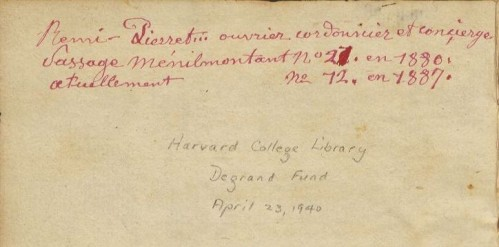 Remi - Pierret... ouvrier cordonnier et concierge
Passage Ménilmontant No 21. en 1880.
actuellement No 12. en 1887.
Harvard College Library
Degrand Fund
April 23, 1940